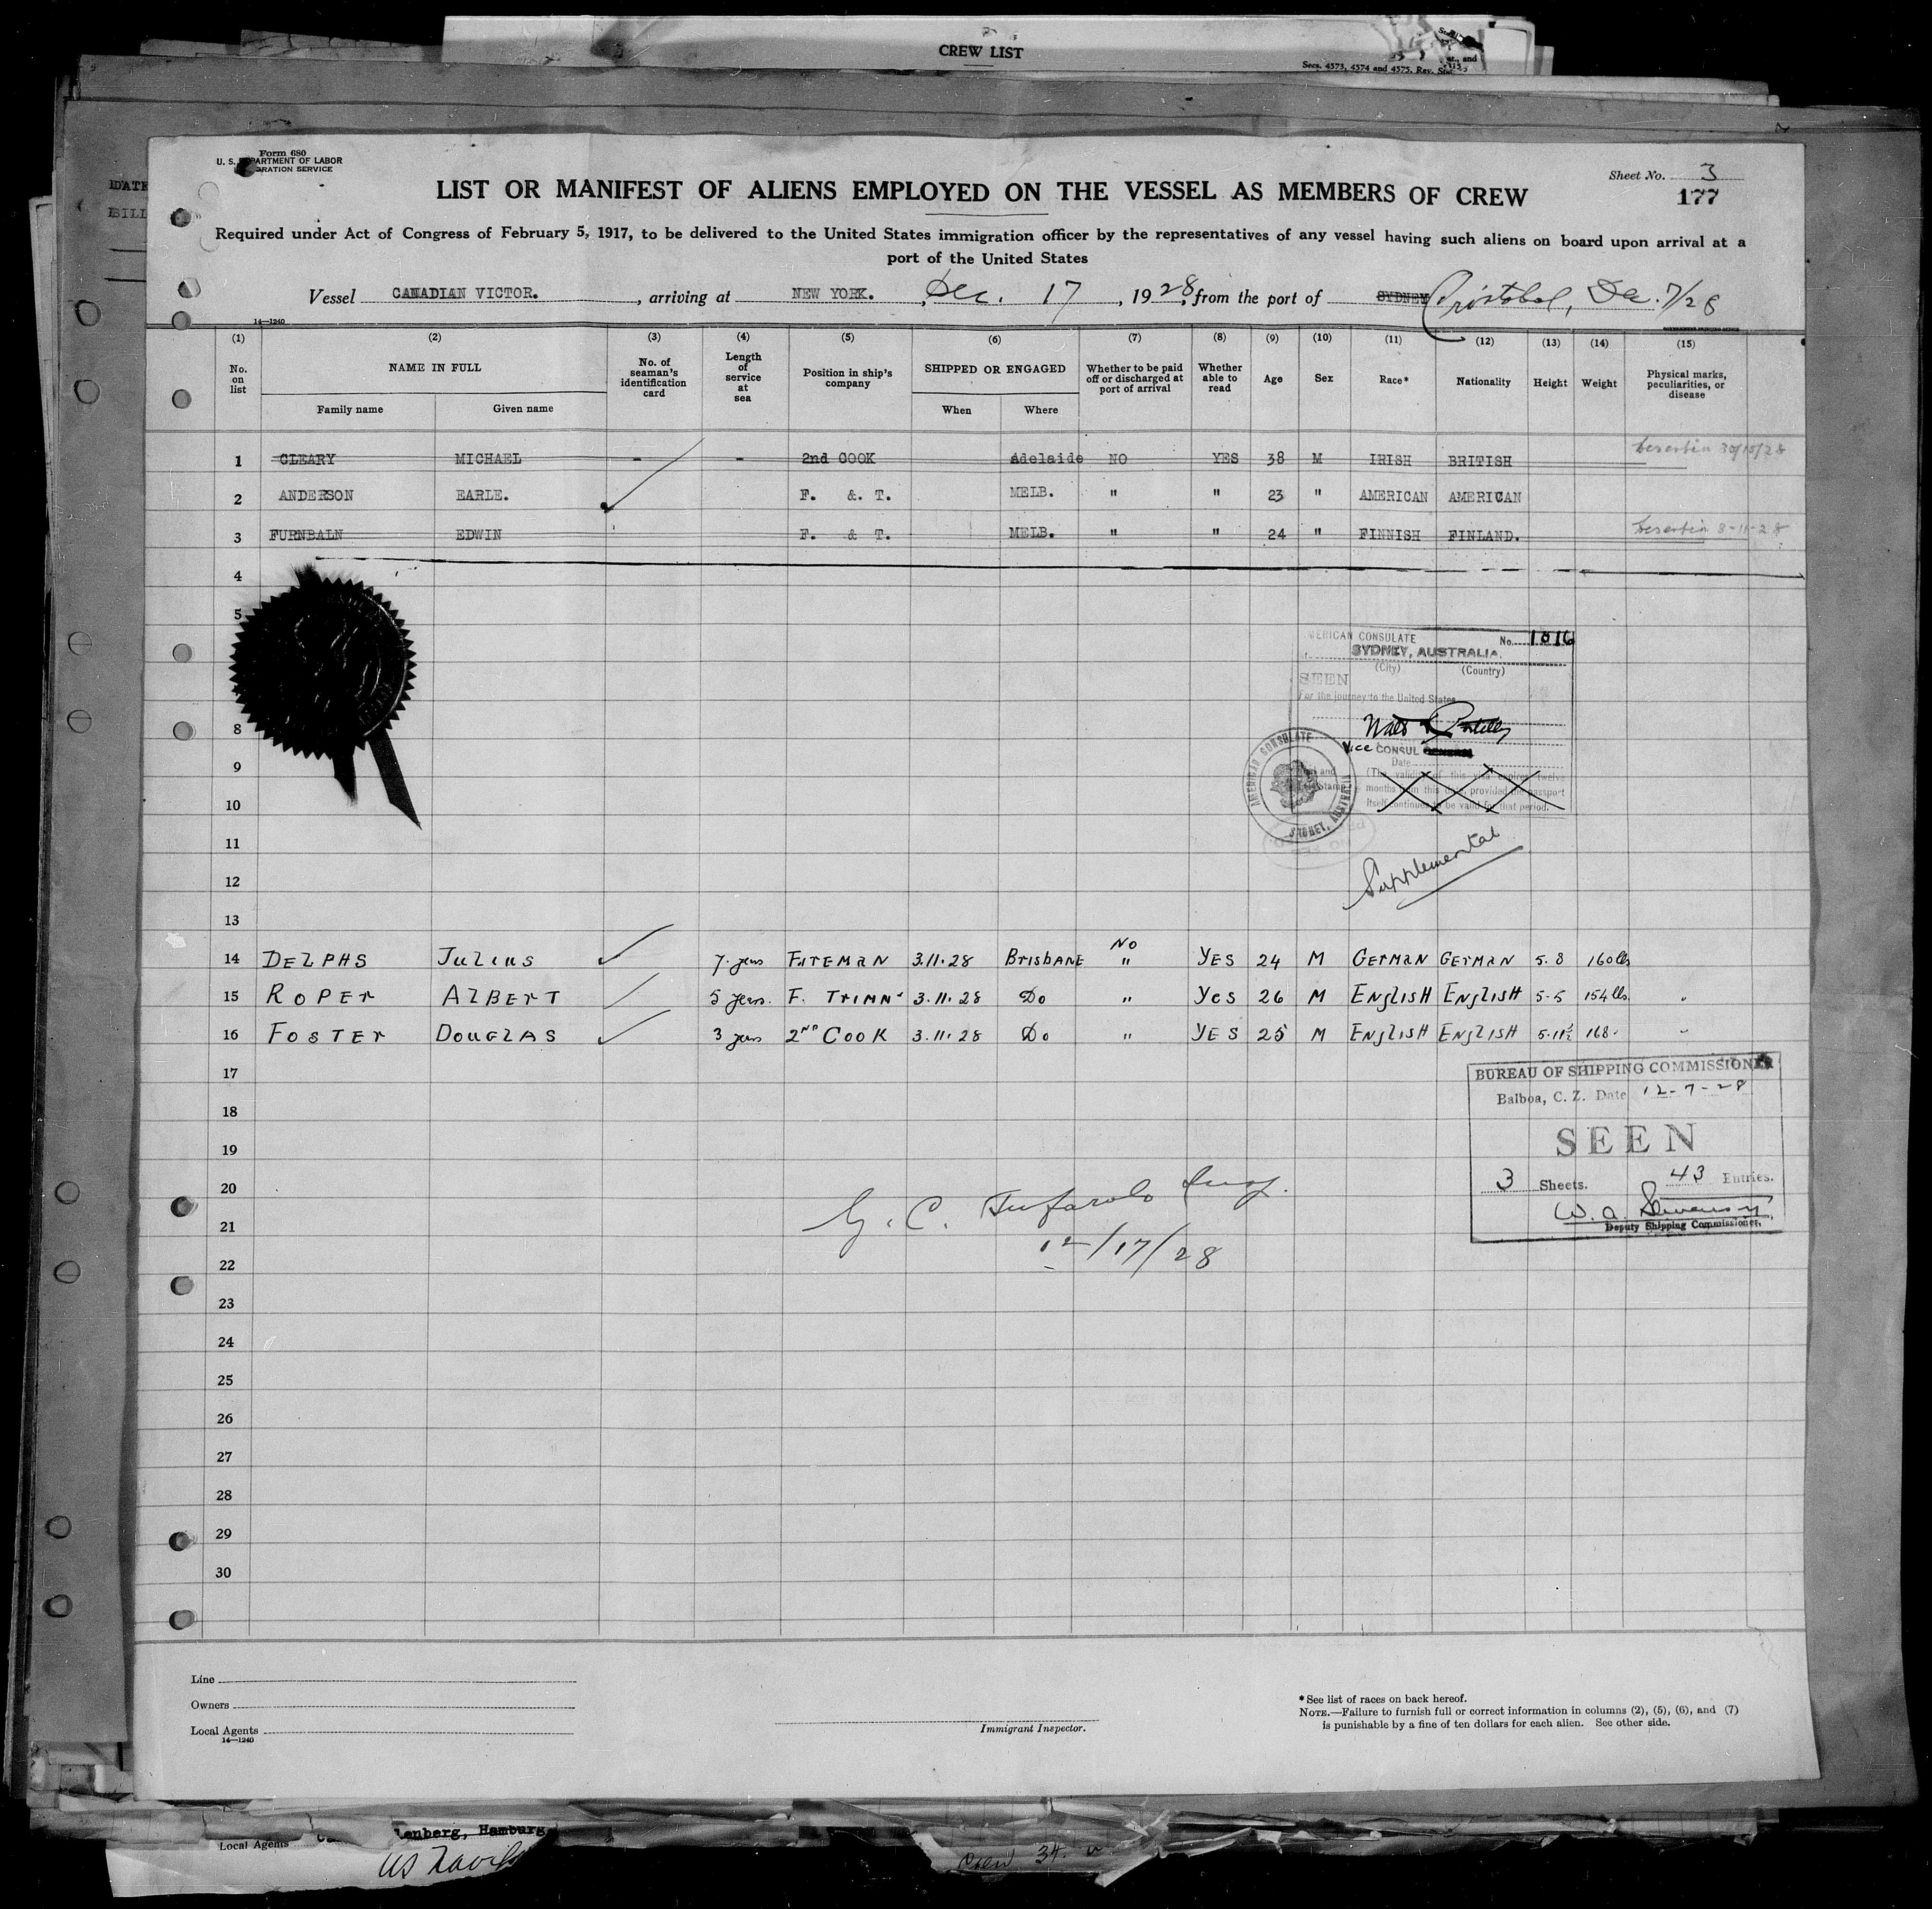 CREW LIST
Secs. 4573, 4574 and 4575, Rev.
DATE
BILL
Form 680
U. S. DEPARTMENT OF LABOR
IMMIGRATION SERVICE
Sheet No. 3
177
LIST OR MANIFEST OF ALIENS EMPLOYED ON THE VESSEL AS MEMBERS OF CREW
Required under Act of Congress of February 5, 1917, to be delivered to the United States immigration officer by the representatives of any vessel having such aliens on board upon arrival at a
port of the United States
Vessel CANADIAN VICTOR. , arriving at NEW YORK. , Dec. 17 , 1928, from the port of SYDNEY Cristobal, Dec. 7/28
14—1240
(1) (2) (3) (4) (5) (6) (7) (8) (9) (10) (11) (12) (13) (14) (15)
No. on list NAME IN FULL No. of seaman's identification card Length of service at sea Position in ship's company SHIPPED OR ENGAGED Whether to be paid off or discharged at port of arrival Whether able to read Age Sex Race* Nationality Height Weight Physical marks, peculiarities, or disease
Family name Given name When Where
1 CLEARY MICHAEL - - 2nd COOK Adelaide NO YES 38 M IRISH BRITISH 30/10/28
2 ANDERSON EARLE. F. &. T. MELB. " " 23 " AMERICAN AMERICAN
3 FURNBALN EDWIN F. & T. MELB. " " 24 " FINNISH FINLAND. 8-11-28
4
5
AMERICAN CONSULATE No. 1816
SYDNEY, AUSTRALIA.
(City) (Country)
SEEN
For the journey to the United States
8
Vice CONSUL GENERAL
Date
9
(The validity of this visa expires twelve
months from this date, provided the passport
itself continues to be valid for that period.
AMERICAN CONSULATE
SYDNEY, AUSTRALIA
10
11
Supplemental
12
13
No
14 DELPHS JULIUS 7 years FIREMAN 3.11.28 BRISBANE " YES 24 M GERMAN GERMAN 5.8 160 lbs
15 ROPER ALBERT 5 years. F. TRIMR 3.11.28 Do " Yes 26 M ENGLISH ENGLISH 5-5 154 lbs. "
16 FOSTER DOUGLAS 3 years 2ND COOK 3.11.28 Do " YES 25 M ENGLISH ENGLISH 5.11½ 168 "
17
BUREAU OF SHIPPING COMMISSIONER
Balboa, C. Z. Date 12-7-28
18
SEEN
19
3 Sheets. 43 Entries.
20
W. A. Swenson
Deputy Shipping Commissioner.
21
12/17/28
22
23
24
25
26
27
28
29
30
Line
Owners
Local Agents
14—1240
Immigrant Inspector.
*See list of races on back hereof.
NOTE.—Failure to furnish full or correct information in columns (2), (5), (6), and (7)
is punishable by a fine of ten dollars for each alien. See other side.
Local Agents
Hamburg
Crew 34